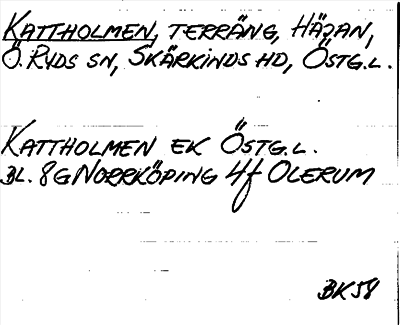 KATTHOLMEN, TERRÄNG, HÄJAN,
Ö. RYDS SN, SKÄRKINDS HD, ÖSTG.L.
KATTHOLMEN EK ÖSTG.L.
BL. 8G NORRKÖPING 4f OLERUM
BK58